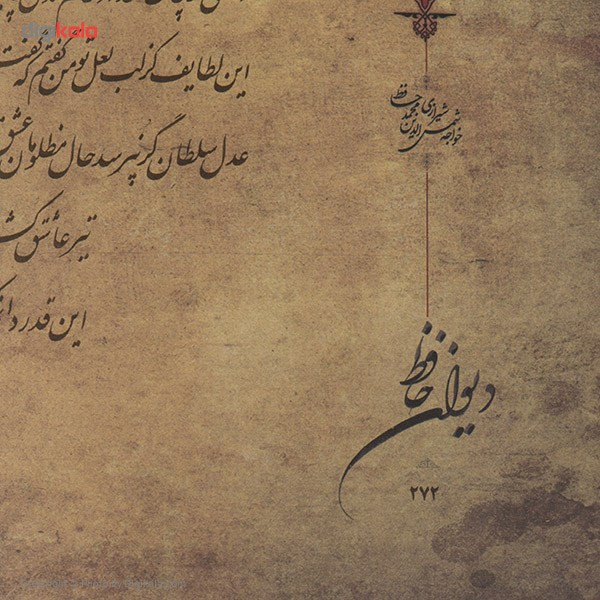 digikala
این لطایف کز لب لعل تو من گفتم که گفت
عدل سلطان گر نپرسد حال مظلومان عشق
تیر عاشق کش
این قدر دانم
خواجه شمس الدین محمد حافظ شیرازی
دیوان حافظ
۲۷۲